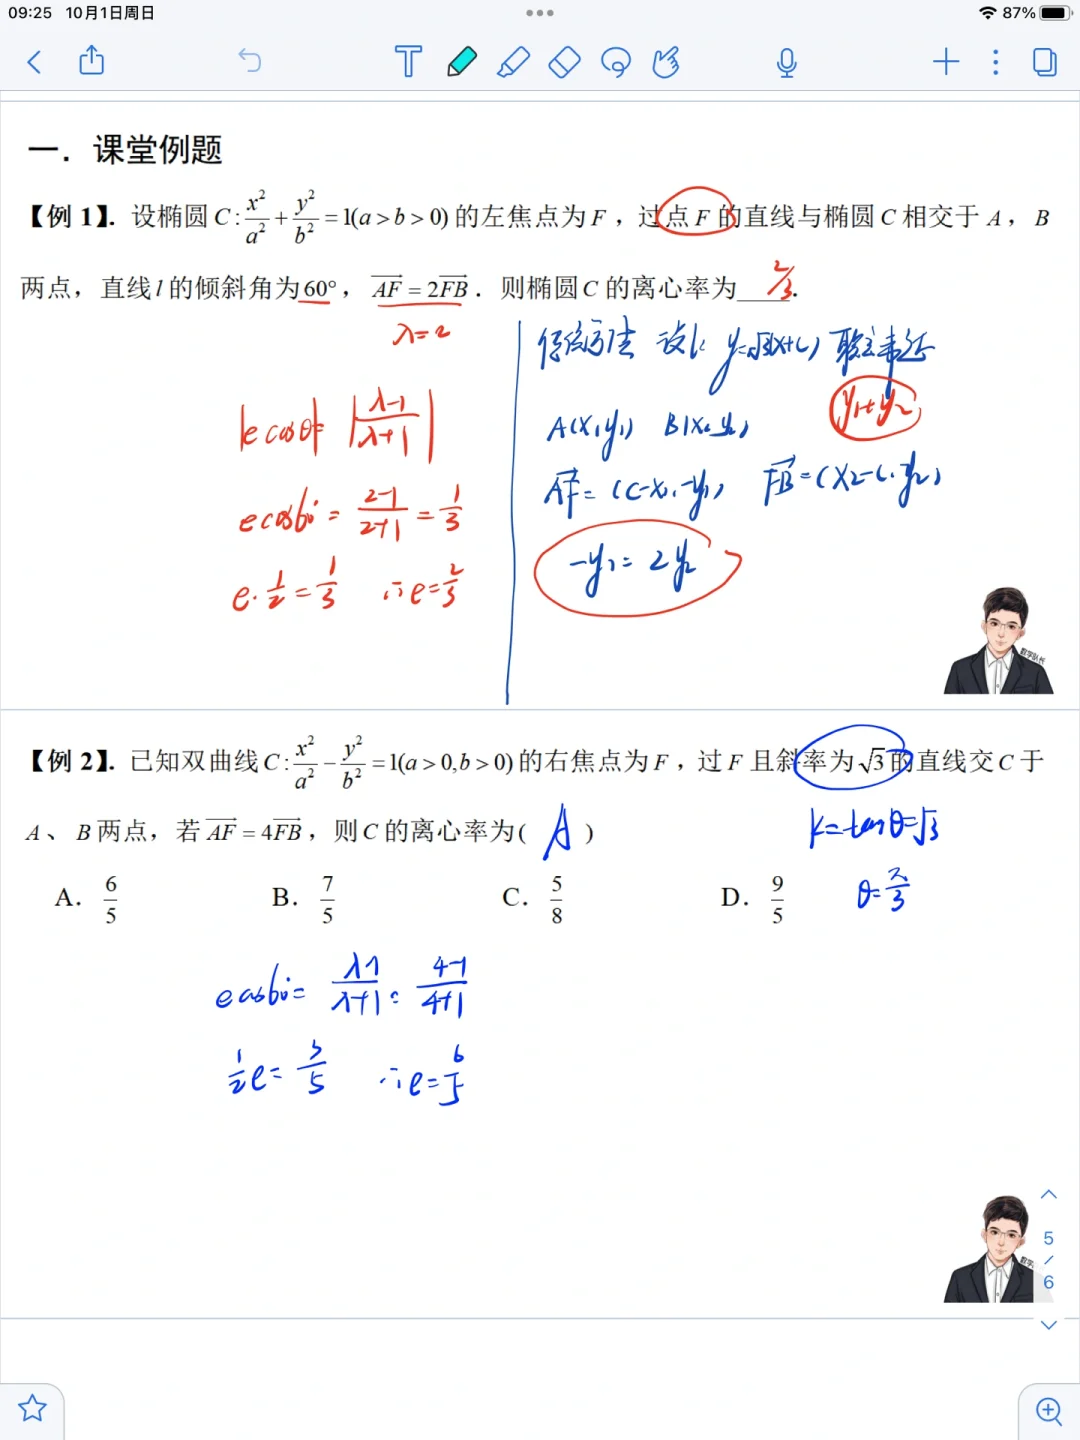 09:25 10月1日周日
87%
一．课堂例题
【例 1】．设椭圆 C: x²/a² + y²/b² = 1(a > b > 0) 的左焦点为 F ，过点 F 的直线与椭圆 C 相交于 A ，B
两点，直线 l 的倾斜角为 60° ，AF = 2FB ．则椭圆 C 的离心率为 2/3 .
λ=2
|e cosθ| = |λ-1/λ+1|
e cos60° = 2-1/2+1 = 1/3
e·1/2 = 1/3 ∴e=2/3
传统方法 设l: y=√3(x+c) 联立韦达
y₁+y₂
A(x₁y₁) B(x₂y₂)
AF = (c-x₁,-y₁) FB = (x₂-c,y₂)
-y₁ = 2y₂
数学耿书
【例 2】．已知双曲线 C: x²/a² − y²/b² = 1(a > 0,b > 0) 的右焦点为 F ，过 F 且斜率为 √3 的直线交 C 于
A 、 B 两点，若 AF = 4FB ，则 C 的离心率为( A )
k=tanθ=√3
A． 6/5 B． 7/5 C． 5/8 D． 9/5
θ=π/3
e cos60° = λ-1/λ+1 = 4-1/4+1
1/2 e = 3/5 ∴e=6/5
数学
5
/
6